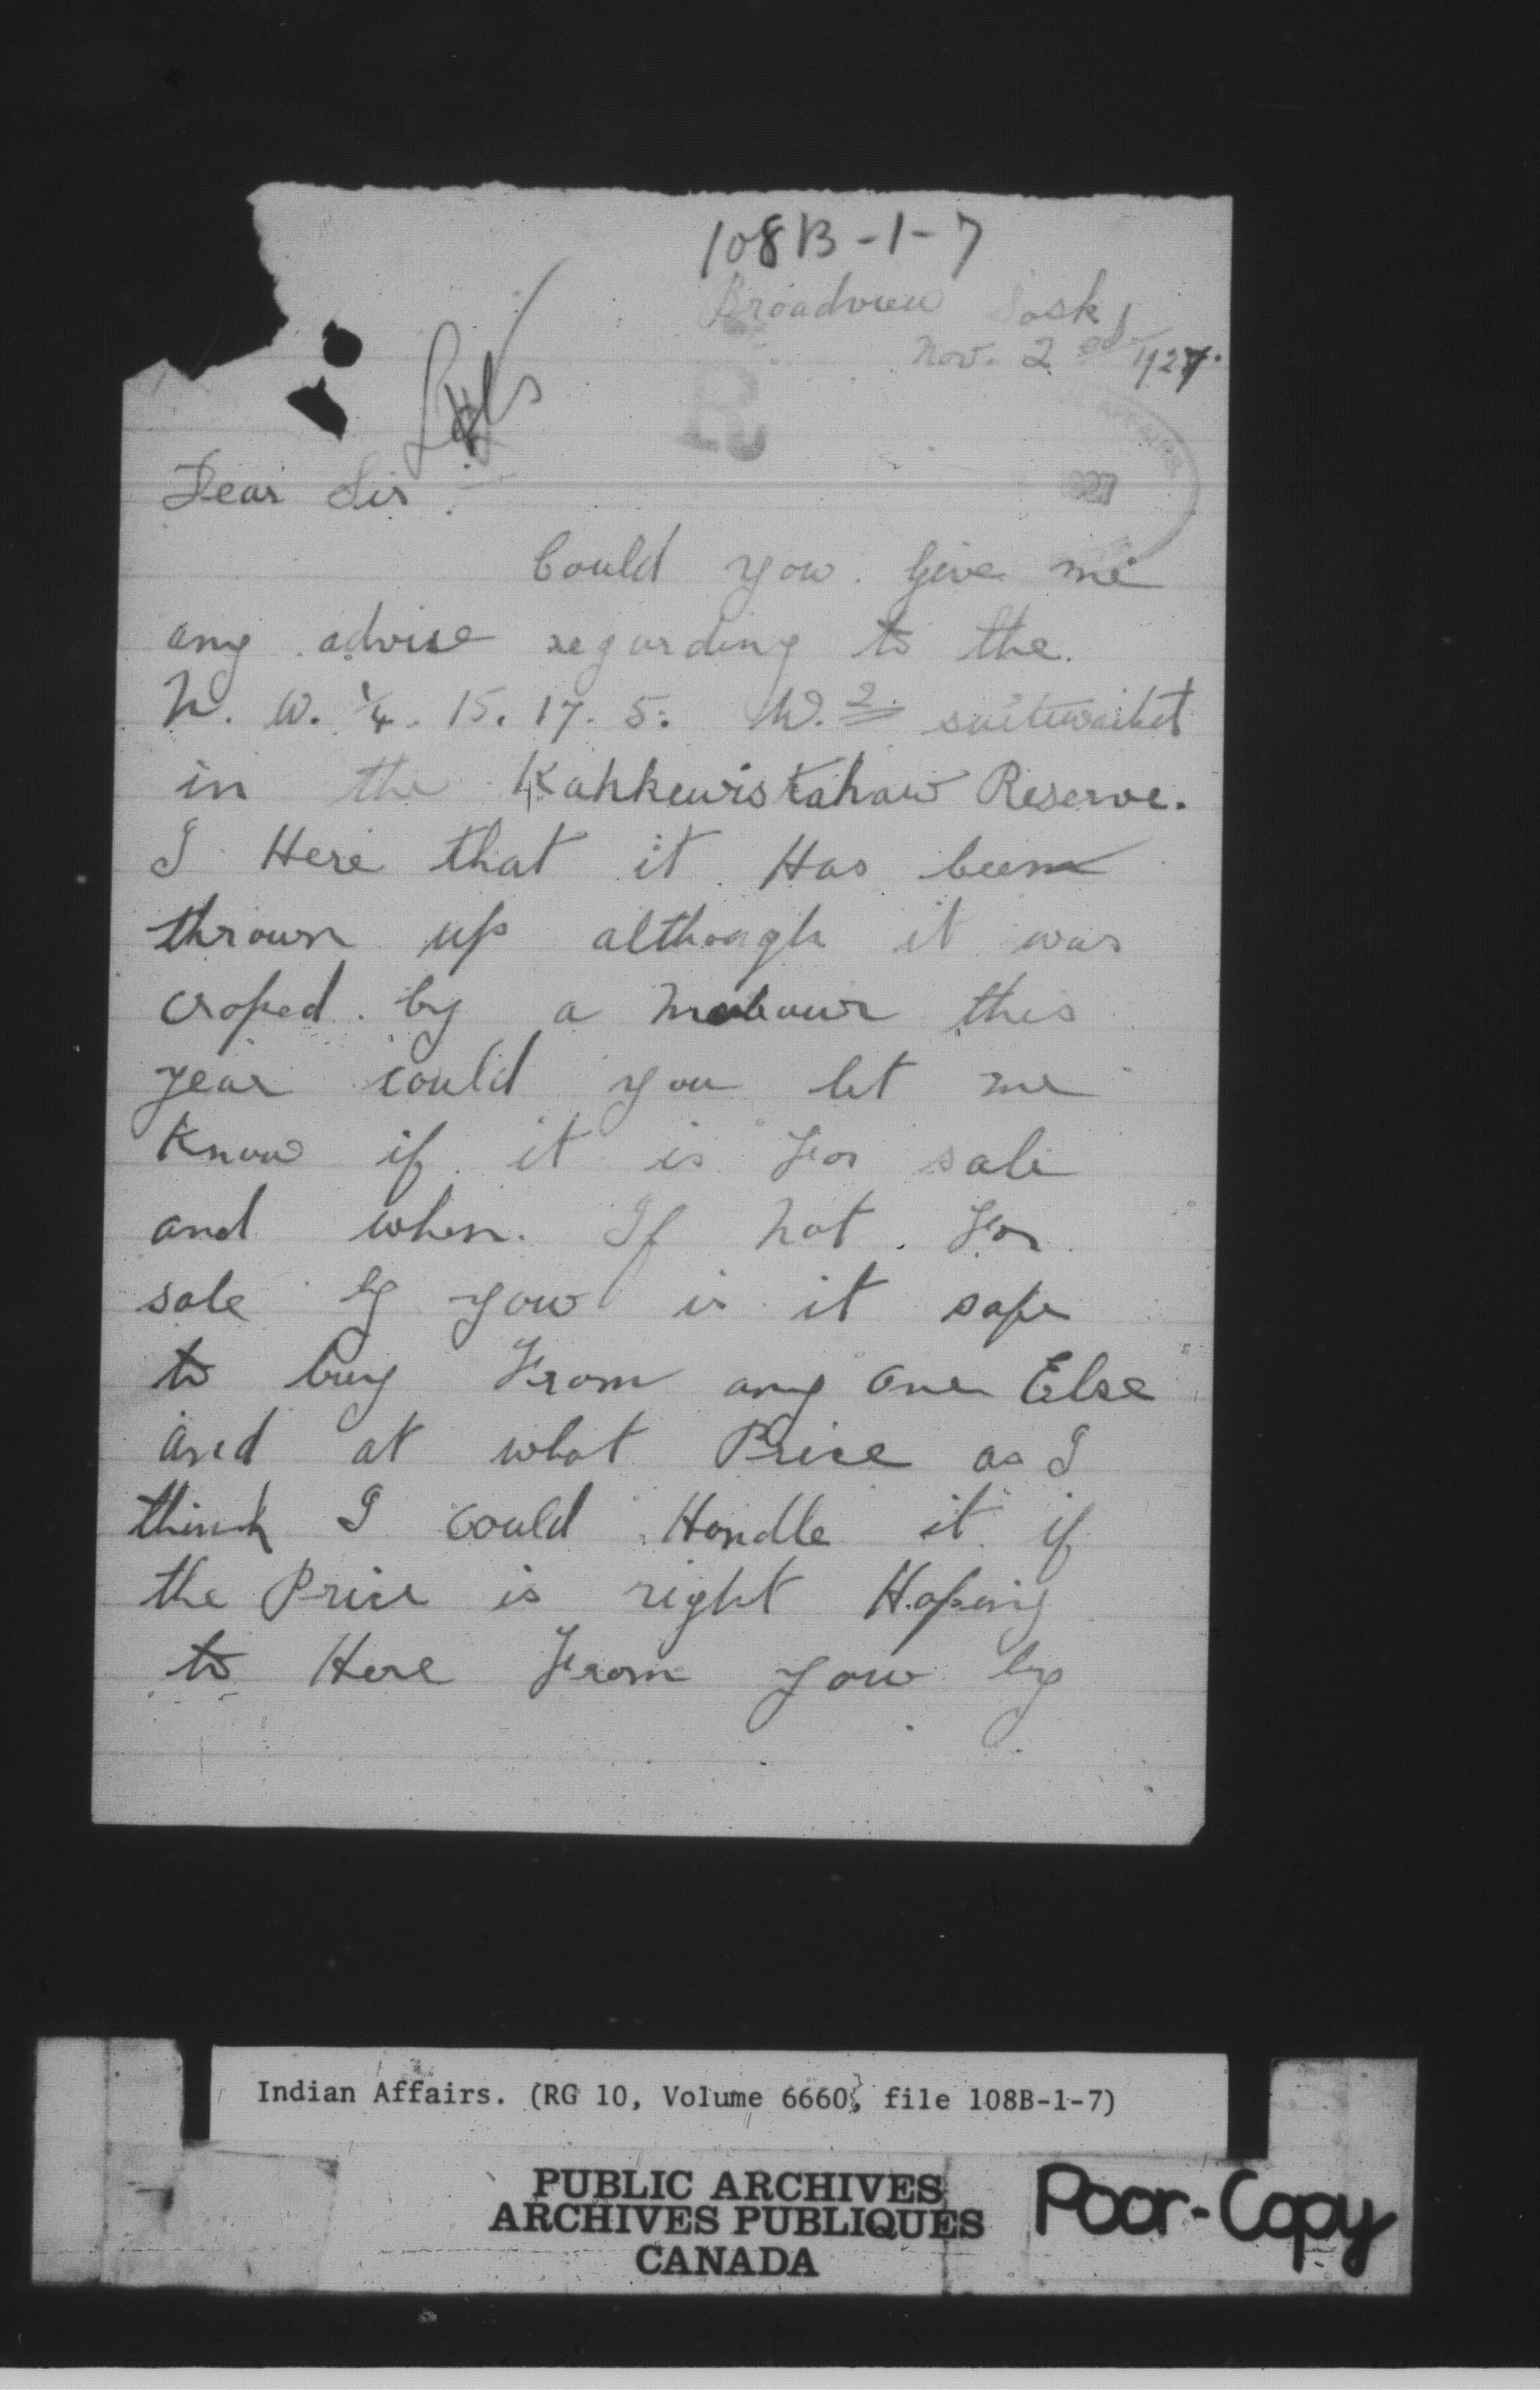 108B-1-7
Broadview Sask
Nov. 2nd 1927.
R
AFFAIRS
1927
Dear Sir.
Could you. Give me
any advise regarding to the.
N. W. 1/4. 15. 17. 5. W. 2.
in the Kahkewistahaw Reserve.
I Here that it Has been
thrown up although it was
croped by a this
year could you let me
Know if it is For sale
and when. If not. For
sale by you is it safe
to buy From any one Else
and at what Price as I
think I could Handle it if
the Price is right Hoping
to Here From you by
Indian Affairs. (RG 10, Volume 6660, file 108B-1-7)
PUBLIC ARCHIVES
ARCHIVES PUBLIQUES
CANADA
Poor-Copy